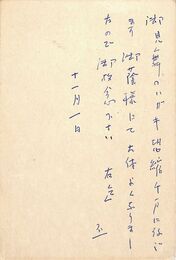 御見舞のハガキ恐縮千万に存じ
ます 御蔭様にて 大体よくなりまし
たので御放念下さい
十一月一日